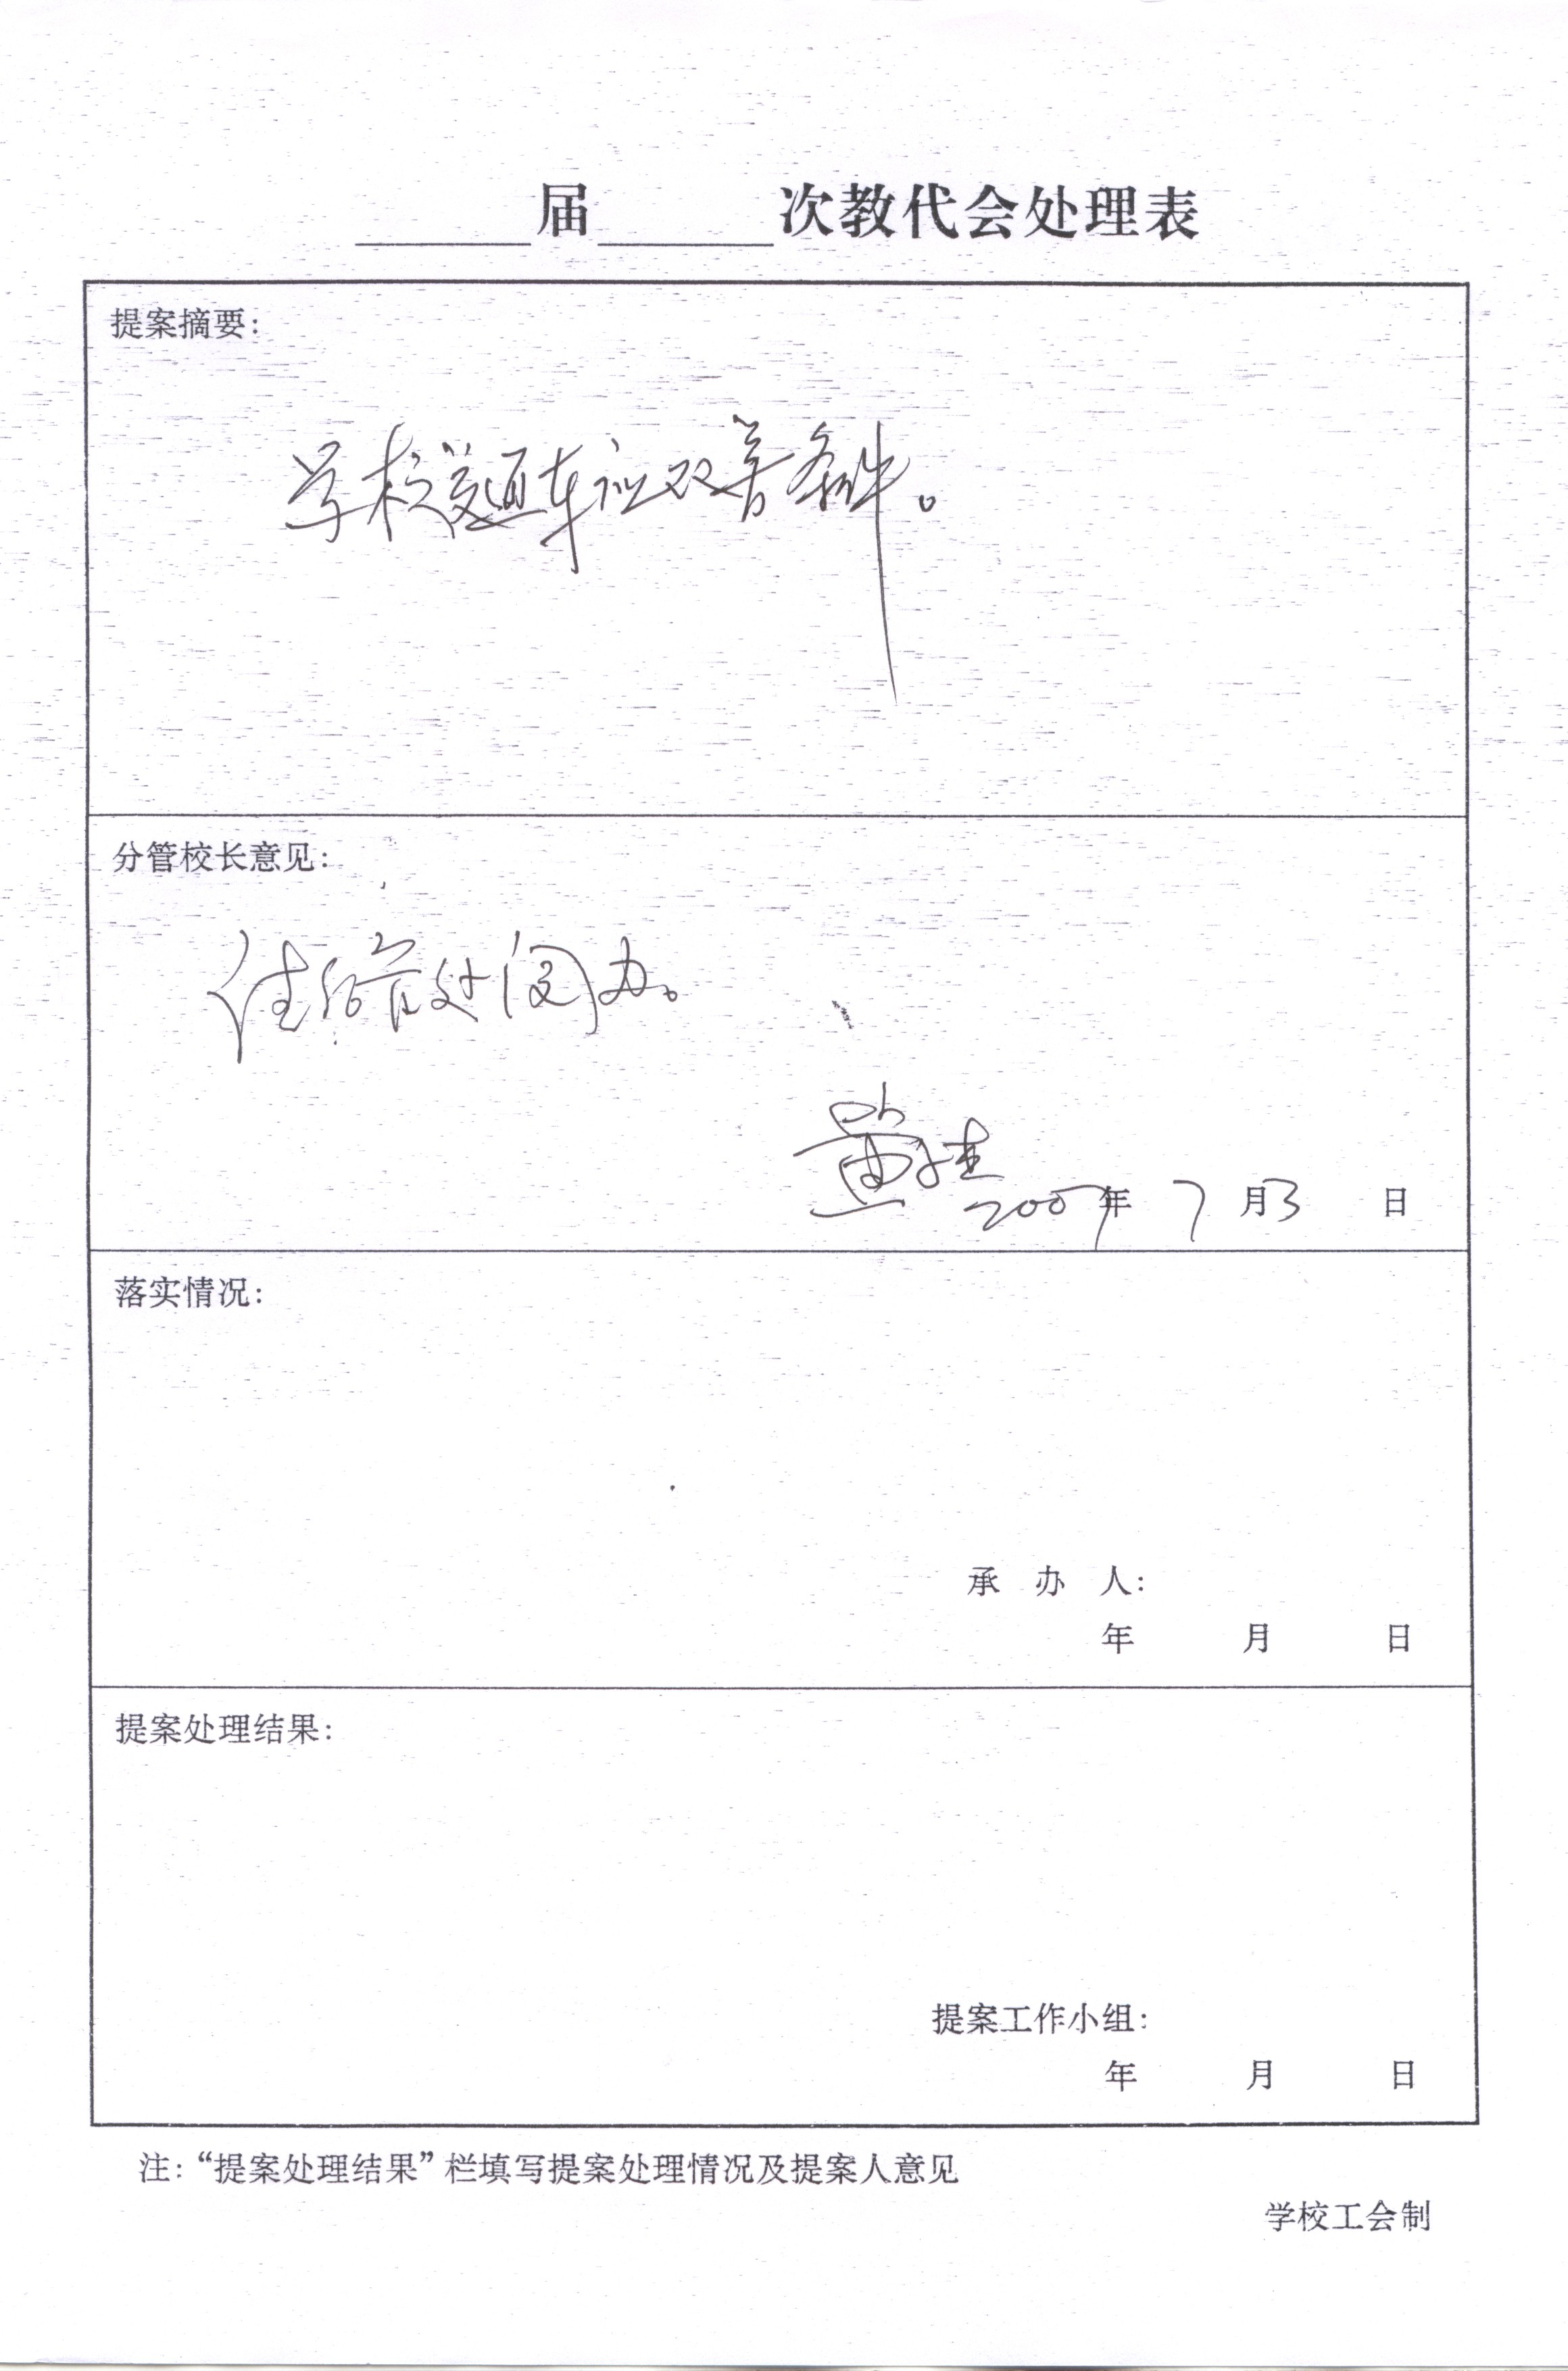 届 次教代会处理表
提案摘要：
学校交通车应改善条件。
分管校长意见：
处阅办。
2007年 7 月3 日
落实情况：
承 办 人：
年 月 日
提案处理结果：
提案工作小组：
年 月 日
注：“提案处理结果”栏填写提案处理情况及提案人意见
学校工会制